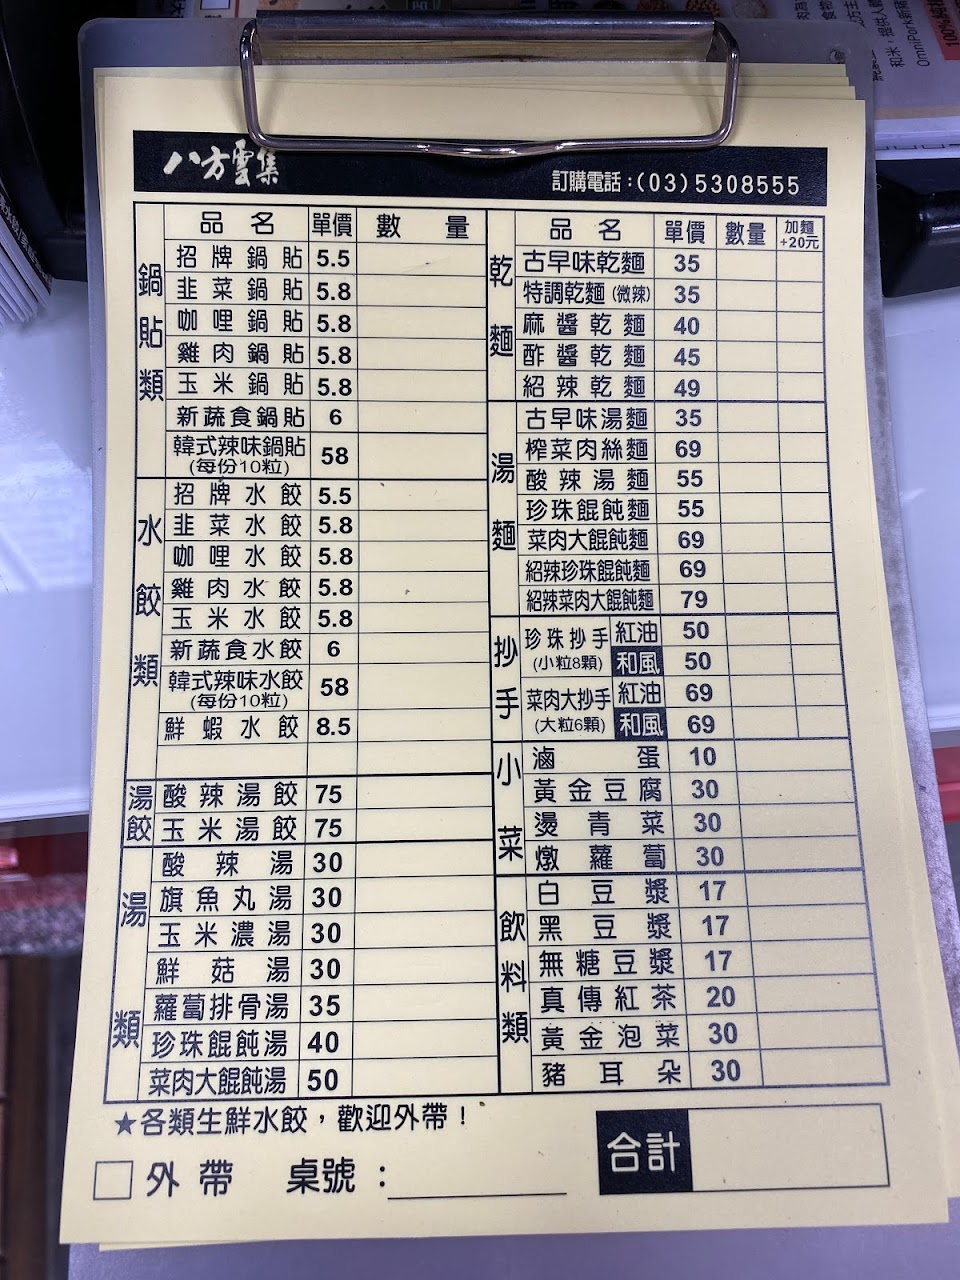 八方雲集
訂購電話:(03)5308555
品名 單價 數量
鍋貼類
招牌鍋貼 5.5
韭菜鍋貼 5.8
咖哩鍋貼 5.8
雞肉鍋貼 5.8
玉米鍋貼 5.8
新蔬食鍋貼 6
韓式辣味鍋貼 58
(每份10粒)
水餃類
招牌水餃 5.5
韭菜水餃 5.8
咖哩水餃 5.8
雞肉水餃 5.8
玉米水餃 5.8
新蔬食水餃 6
韓式辣味水餃 58
(每份10粒)
鮮蝦水餃 8.5
湯餃
酸辣湯餃 75
玉米湯餃 75
湯類
酸辣湯 30
旗魚丸湯 30
玉米濃湯 30
鮮菇湯 30
蘿蔔排骨湯 35
珍珠餛飩湯 40
菜肉大餛飩湯 50
品名 單價 數量 加麵
+20元
乾麵
古早味乾麵 35
特調乾麵(微辣) 35
麻醬乾麵 40
酢醬乾麵 45
紹辣乾麵 49
湯麵
古早味湯麵 35
榨菜肉絲麵 69
酸辣湯麵 55
珍珠餛飩麵 55
菜肉大餛飩麵 69
紹辣珍珠餛飩麵 69
紹辣菜肉大餛飩麵 79
抄手
珍珠抄手 紅油 50
(小粒8顆) 和風 50
菜肉大抄手 紅油 69
(大粒6顆) 和風 69
小菜
滷蛋 10
黃金豆腐 30
燙青菜 30
燉蘿蔔 30
飲料類
白豆漿 17
黑豆漿 17
無糖豆漿 17
真傳紅茶 20
黃金泡菜 30
豬耳朵 30
★各類生鮮水餃,歡迎外帶!
外帶 桌號:
合計